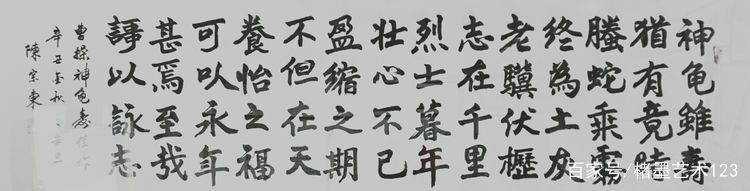 神龜雖壽
猶有竟時
螣蛇乘霧
終為土灰
老驥伏櫪
志在千里
烈士暮年
壯心不已
盈縮之期
不但在天
養怡之福
可以永年
甚焉至哉
謌以詠志
曹操神龜壽
辛丑金秋
陳宗東
百家号/楮墨艺术123